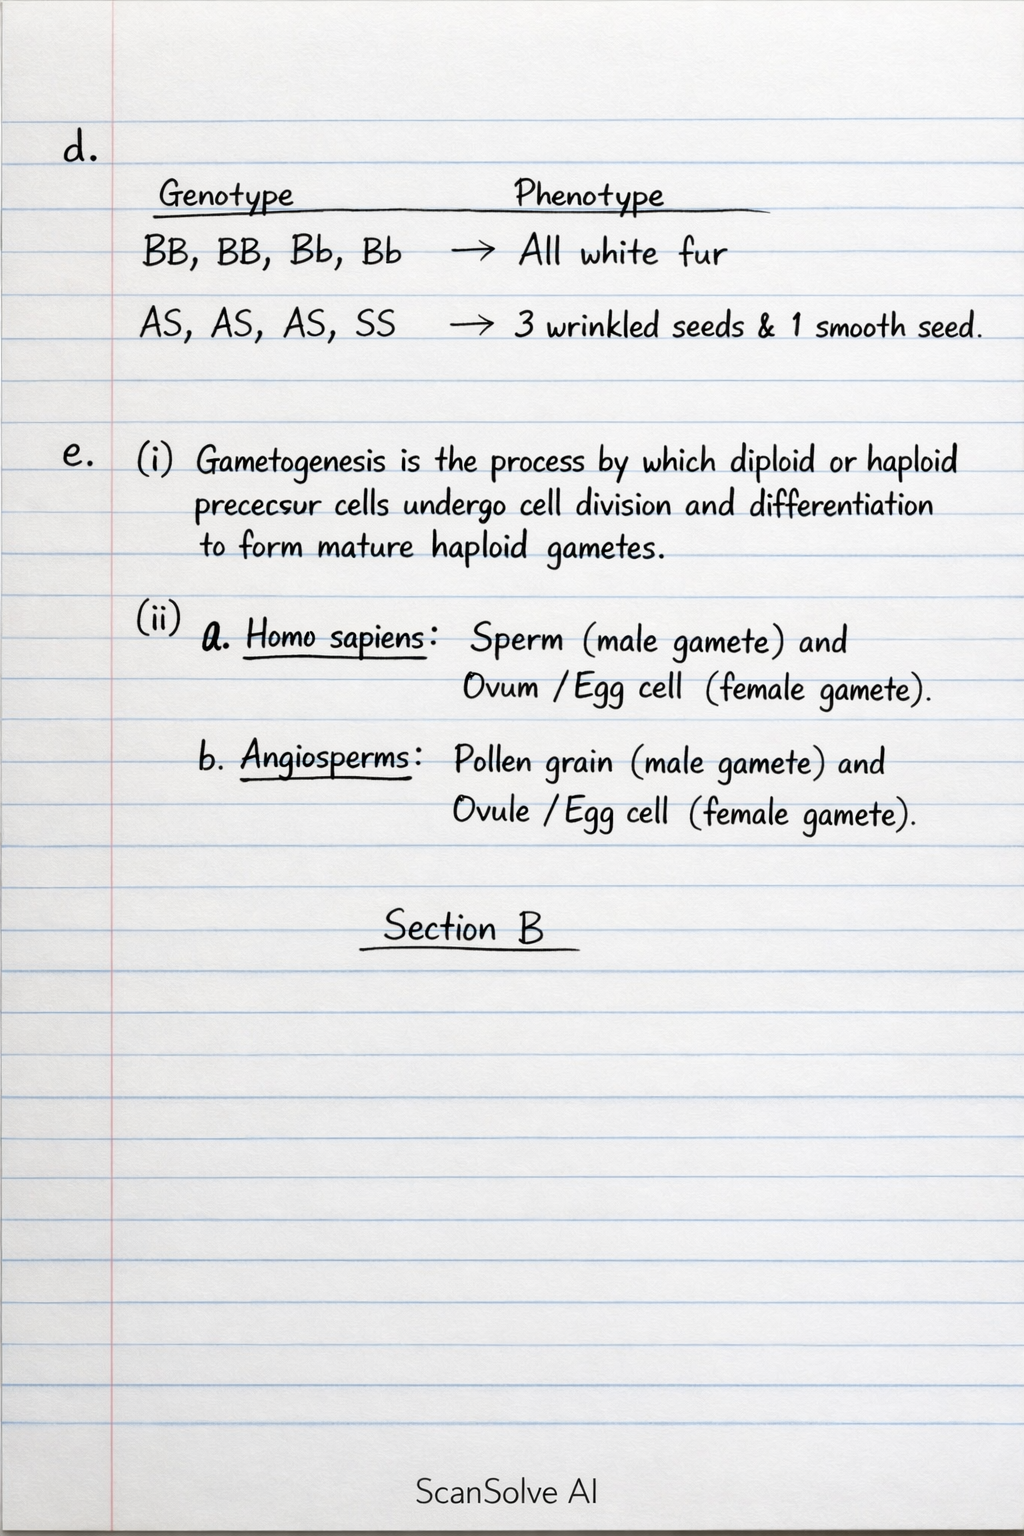 d.
Genotype Phenotype
BB, BB, Bb, Bb → All white fur
AS, AS, AS, SS → 3 wrinkled seeds & 1 smooth seed.
e. (i) Gametogenesis is the process by which diploid or haploid
prececsur cells undergo cell division and differentiation
to form mature haploid gametes.
(ii) a. Homo sapiens: Sperm (male gamete) and
Ovum / Egg cell (female gamete).
b. Angiosperms: Pollen grain (male gamete) and
Ovule / Egg cell (female gamete).
Section B
ScanSolve AI